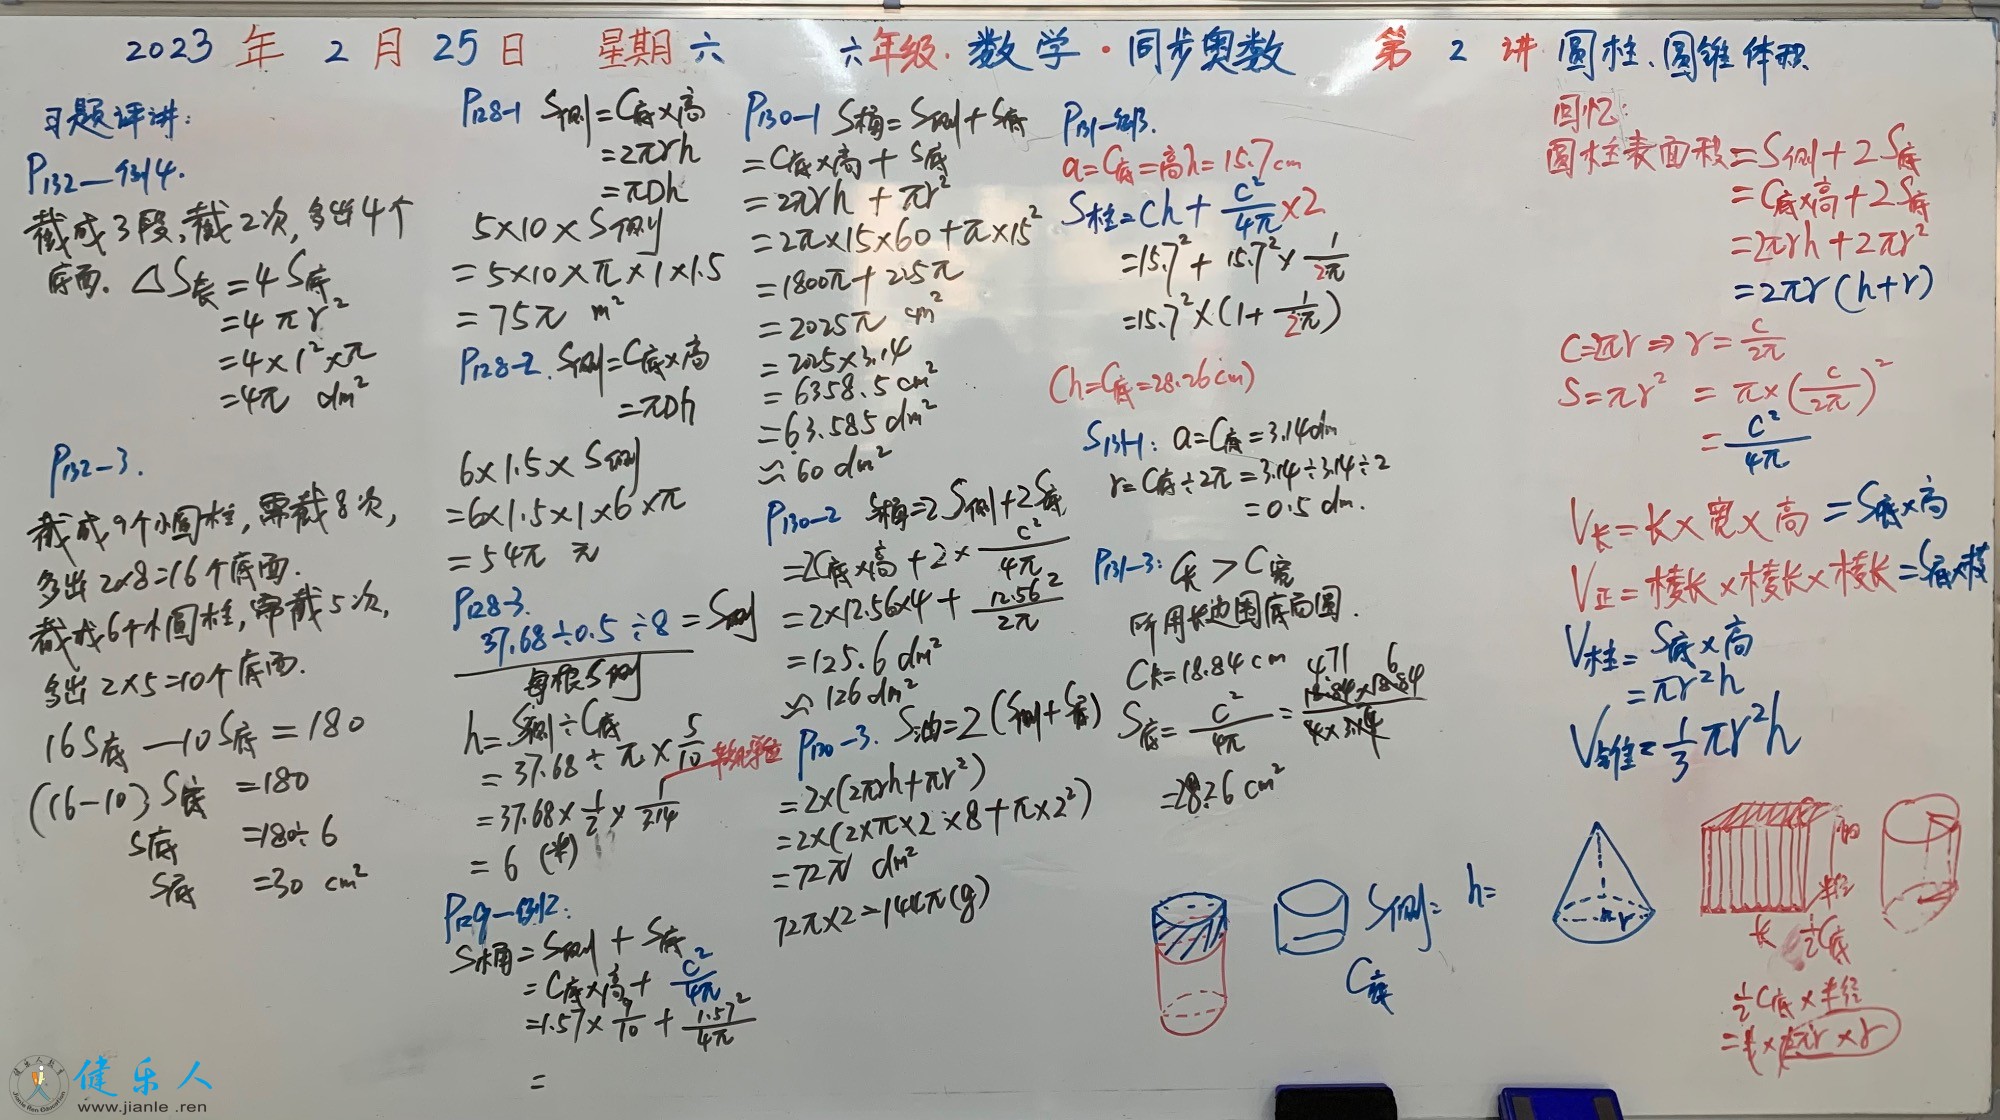 2023 年 2 月 25 日 星期六 六年级·数学·同步奥数 第 2 讲 圆柱、圆锥体积
习题评讲:
P132—例4.
截成3段,截2次,多出4个
底面. △S表=4S底
=4πr²
=4×1²×π
=4π dm²
P132-3.
截成9个小圆柱,需截8次,
多出2×8=16个底面.
截成6个小圆柱,需截5次,
多出2×5=10个底面.
16S底—10S底=180
(16-10)S底=180
S底=180÷6
S底=30 cm²
P128-1 S侧=C底×高
=2πrh
=πDh
5×10×S侧
=5×10×π×1×1.5
=75π m²
P128-2. S侧=C底×高
=πDh
6×1.5×S侧
=6×1.5×1×6×π
=54π 元
P128-3.
37.68÷0.5÷8=S侧
每根S侧
h=S侧÷C底
=37.68÷π×5/10
=37.68×1/2×1/3.14
=6 (米)
P129—例2:
S桶=S侧+S底
=C底×高+C²/4π
=1.57×9/10+1.57²/4π
=
P130-1 S桶=S侧+S底
=C底×高+S底
=2πrh+πr²
=2π×15×60+π×15²
=1800π+225π
=2025π cm²
=2025×3.14
=6358.5cm²
=63.585dm²
≈60dm²
P130-2 S桶=2S侧+2S底
=2C底×高+2×C²/4π
=2×12.56×4+12.56²/2π
=125.6dm²
≈126dm²
P130-3. S油=2(S侧+S底)
=2×(2πrh+πr²)
=2×(2×π×2×8+π×2²)
=72π dm²
72π×2=144π(g)
P131-例3.
a=C底=高h=15.7cm
S柱=Ch+C²/4π×2
=15.7²+15.7²×1/2π
=15.7²×(1+1/2π)
(h=C底=28.26cm)
S131-1: a=C底=3.14dm
r=C底÷2π=3.14÷3.14÷2
=0.5dm.
P131-3: C长>C宽
所用长边围底面圆.
C长=18.84cm
4.71 6
S底=C²/4π=18.84×18.84/4×3.14
=28.26cm²
S侧= h=
C底
回忆:
圆柱表面积=S侧+2S底
=C底×高+2S底
=2πrh+2πr²
=2πr(h+r)
C=2πr⇒r=C/2π
S=πr²=π×(C/2π)²
=C²/4π
V长=长×宽×高=S底×高
V正=棱长×棱长×棱长=S底×棱
V柱=S底×高
=πr²h
V锥=1/3πr²h
r
半径
长 1/2C底
1/2C底×半径
πr×r
健乐人
www.jianle.ren